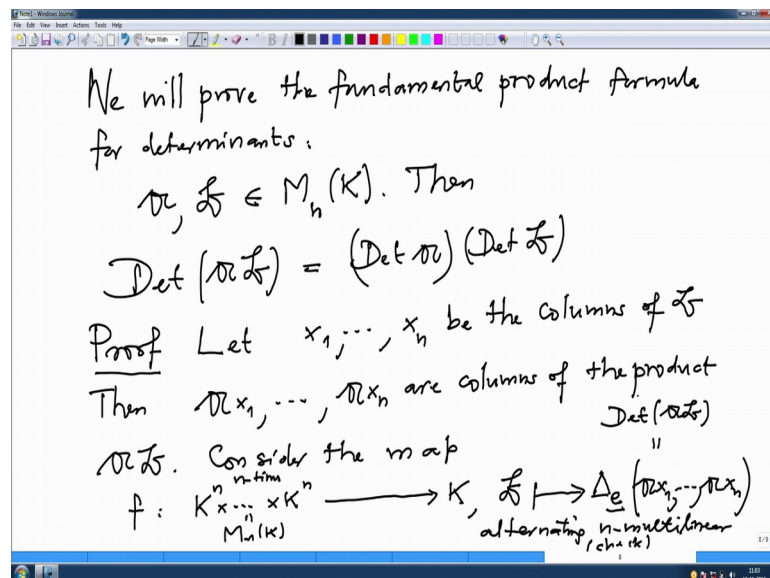 Note1 - Windows Journal
File Edit View Insert Actions Tools Help
Page Width
We will prove the fundamental product formula
for determinants:
𝔄, 𝔅 ∈ Mₙ(K). Then
Det(𝔄𝔅) = (Det 𝔄)(Det 𝔅)
Proof Let x₁, ⋯, xₙ be the columns of 𝔅
Then 𝔄x₁, ⋯, 𝔄xₙ are columns of the product
𝔄𝔅. Consider the map
Det(𝔄𝔅)
=
n-time
f: Kⁿ × ⋯ × Kⁿ ⟶ K, 𝔅 ⟼ Δₑ(𝔄x₁, ⋯, 𝔄xₙ)
=
Mₙ(K)
alternating, n-multilinear
(check)
8/9
8
11:03